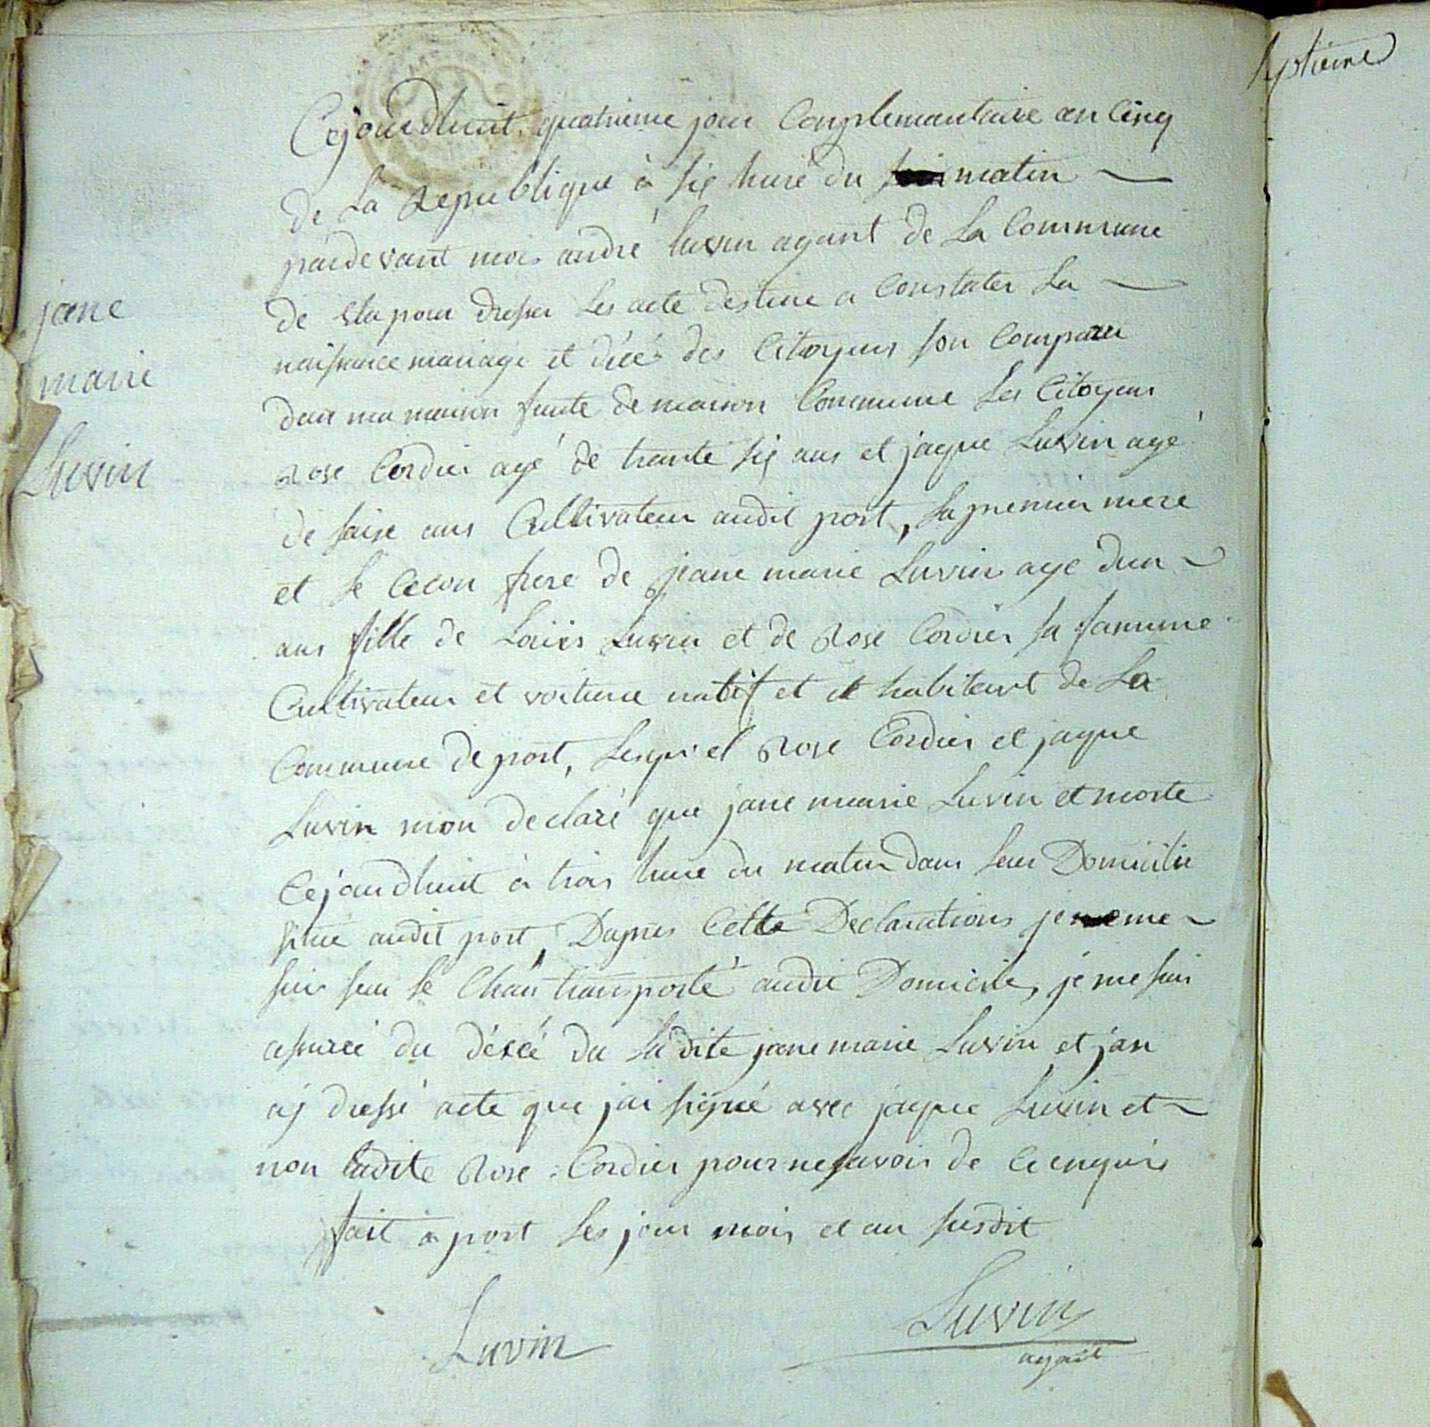 septieme
Cejourdhuit quatrieme jour Complemantaire an Cinq
de La Republique à six heure du matin
pardevant moi andré luvin agant de La Commune
de sta pour dresser Les acte destine a Constater La
naissance mariage et décé des Citoyens son Comparu
dans ma maison faute de maison Commune Les Citoyens
Rose Cordier agé de trante six ans et jaque Luvin agé
de saise ans Cultivateur audit port, La premier mere
et le Cecon frere de jeane marie Luvin age dun
ans fille de Loüis Luvin et de Rose Cordier sa famme
Cultivateur et voiturie natif et habitant de La
Commune de port, Lesquel Rose Cordier et jaque
Luvin mon declaré que jane marie Luvin et morte
Cejourdhuit à trois heure du matin dans Leur Domicilie
situé audit port, Dapres Cette Declarations je me
suis sur le Chan transporté audit Domicile, je me suis
assuré du décé du Ladite jane marie Luvin et jan
aj dressé acte que jai signé avec jaque Luvin et
non ladite Rose Cordier pour ne savoir de Ce enquis
fait à port Les jour mois et an susdit
Luvin
Luvin
agant
jane
marie
Luvin